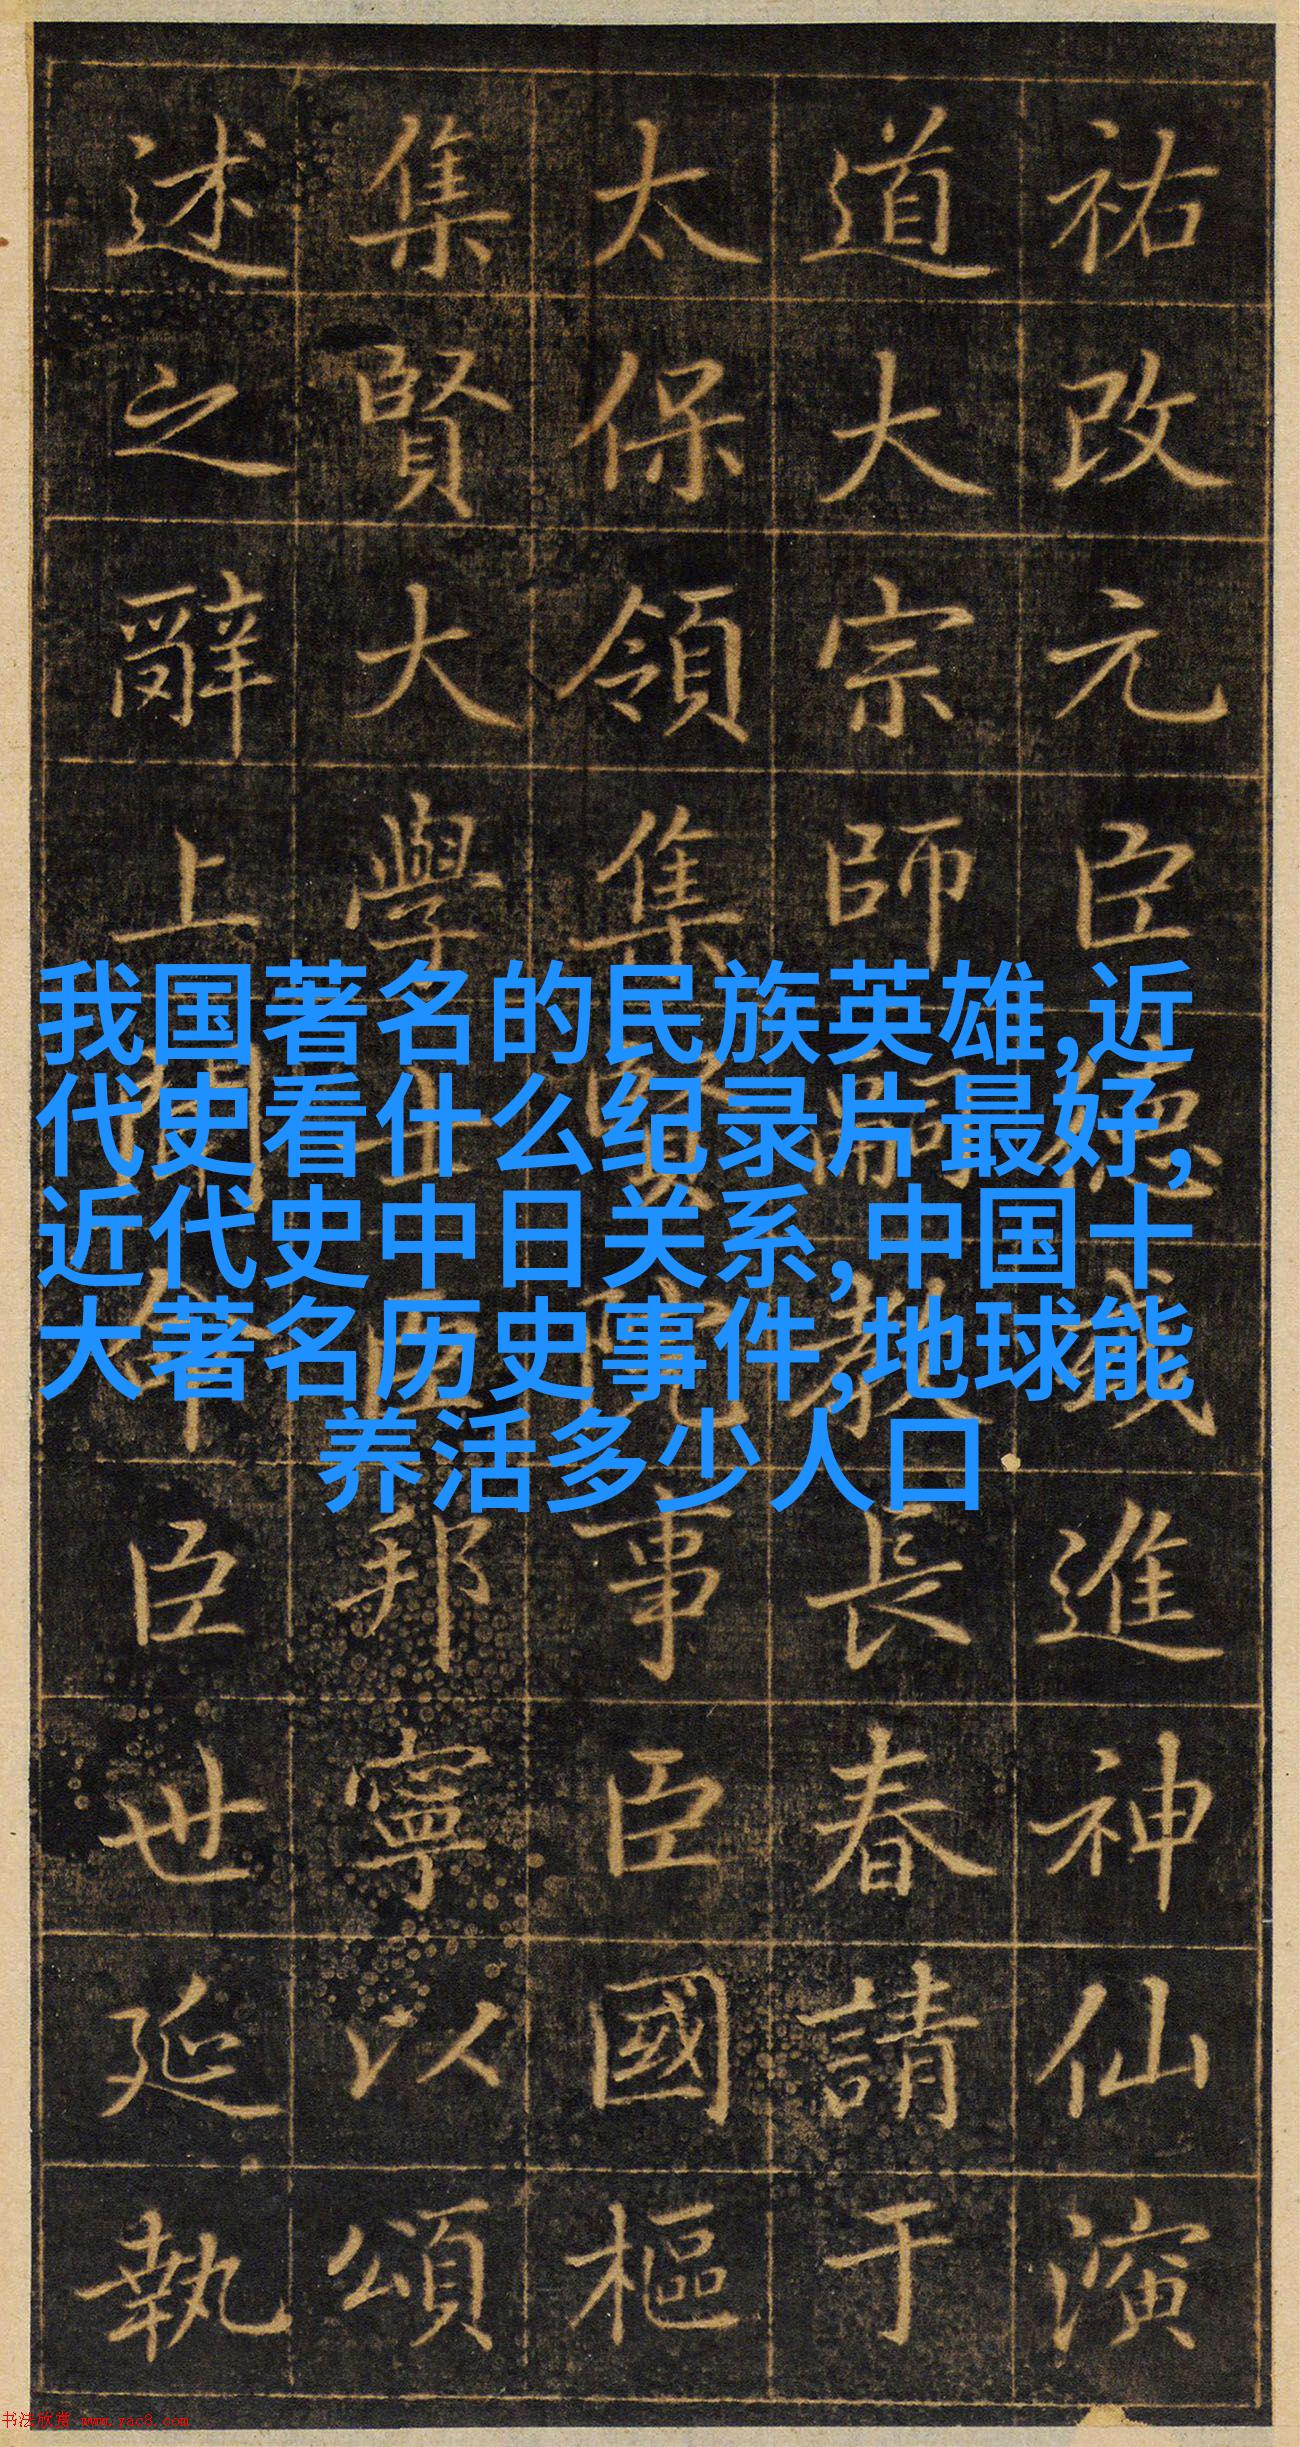 祐改元臣德進神仙演
道大宗師嗣教長春請于
太保領集賢院事臣國樞
集賢大學士臣邦寧以頌
述之辭上聞命臣世延執
我国著名的民族英雄,近
代史看什么纪录片最好,
近代史中日关系,中国十
大著名历史事件,地球能
养活多少人口
书法欣赏 www.yac8.com